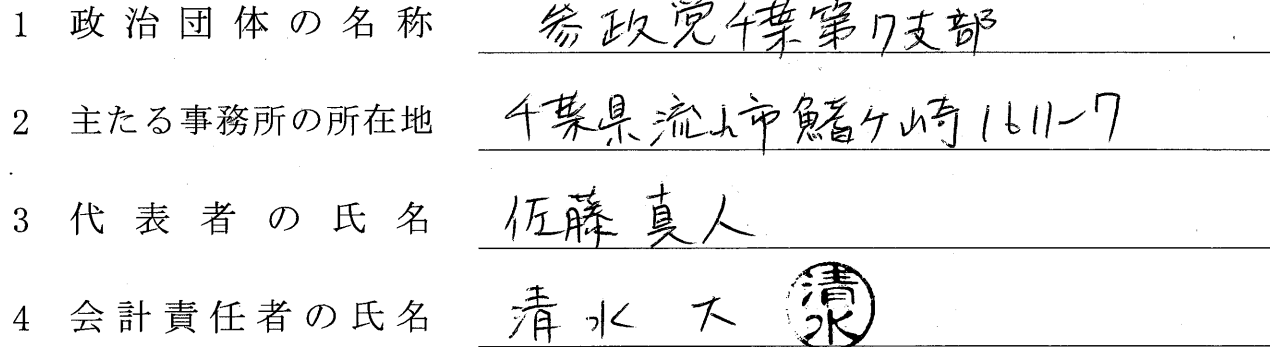 1 政治団体の名称 参政党千葉第7支部
2 主たる事務所の所在地 千葉県流山市鰭ケ崎1611-7
3 代表者の氏名 佐藤真人
4 会計責任者の氏名 清水 大 清水